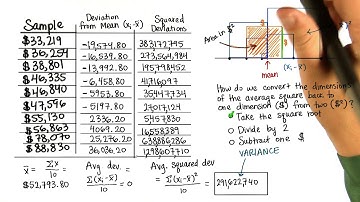 Sample
Deviation from Mean (xᵢ-x̄)
Squared Deviations
$33,219
-19,574.80
383,172,795
$36,254
-16,539.80
273,564,984
$38,801
-13,992.80
195,798,452
$46,335
-6,458.80
41,716,097
$46,840
-5953.80
35,447,734
$47,596
-5197.80
27,017,124
$55,130
2336.20
5,457,830
$56,863
4069.20
16,558,389
$78,070
25,276.20
638,886,286
$88,830
36,036.20
1,298,607,710
x̄ = Σx/10 =
$52,793.80
Avg. dev. =
Σ(xᵢ-x̄)/10 = 0
Avg. squared dev
= Σ(xᵢ-x̄)²/10 =
291,622,740
Area in $²
(xᵢ-x̄)
mean
How do we convert the dimension
of the average square back to
one dimension ($) from two ($²)?
Take the square root
Divide by 2
Subtract one $
VARIANCE